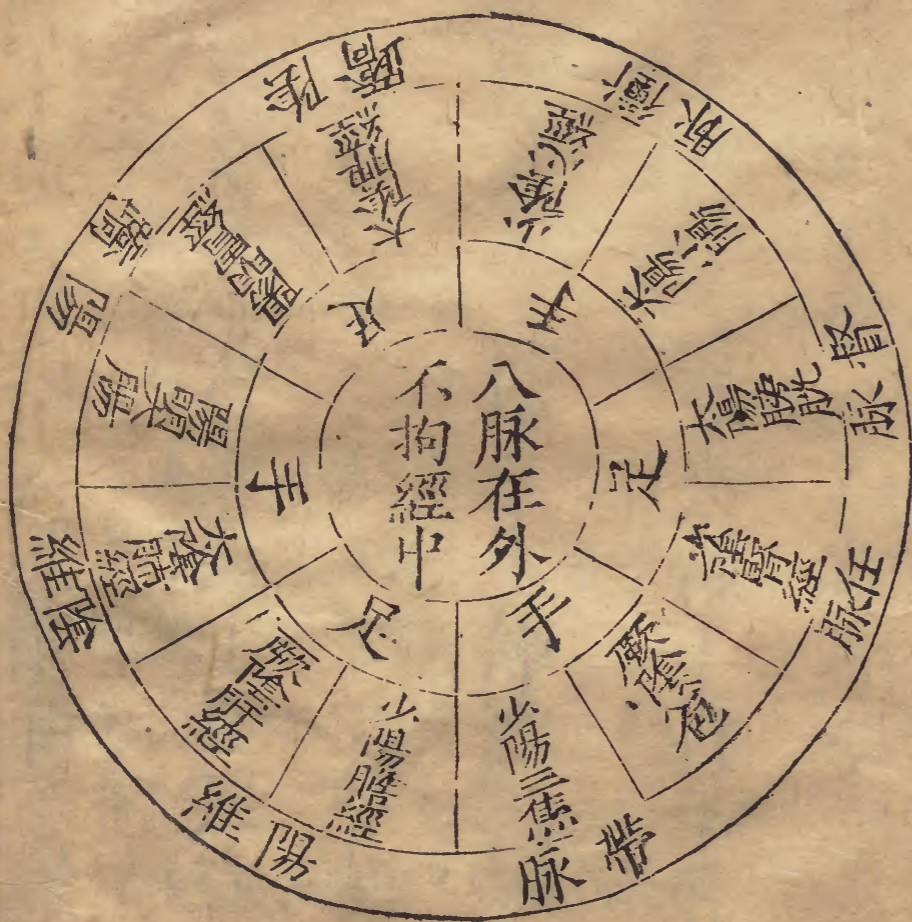 八脉在外
不拘經中
手
足
手
足
手
足
少陰心經
太陽小腸
太陽膀胱
少陰腎經
厥陰心包
少陽三焦
少陽膽經
厥陰肝經
太陰肺經
陽明大腸
陽明胃經
太陰脾經
衝脉
督脉
任脉
帶脉
陽維
陰維
陽蹻
陰蹻